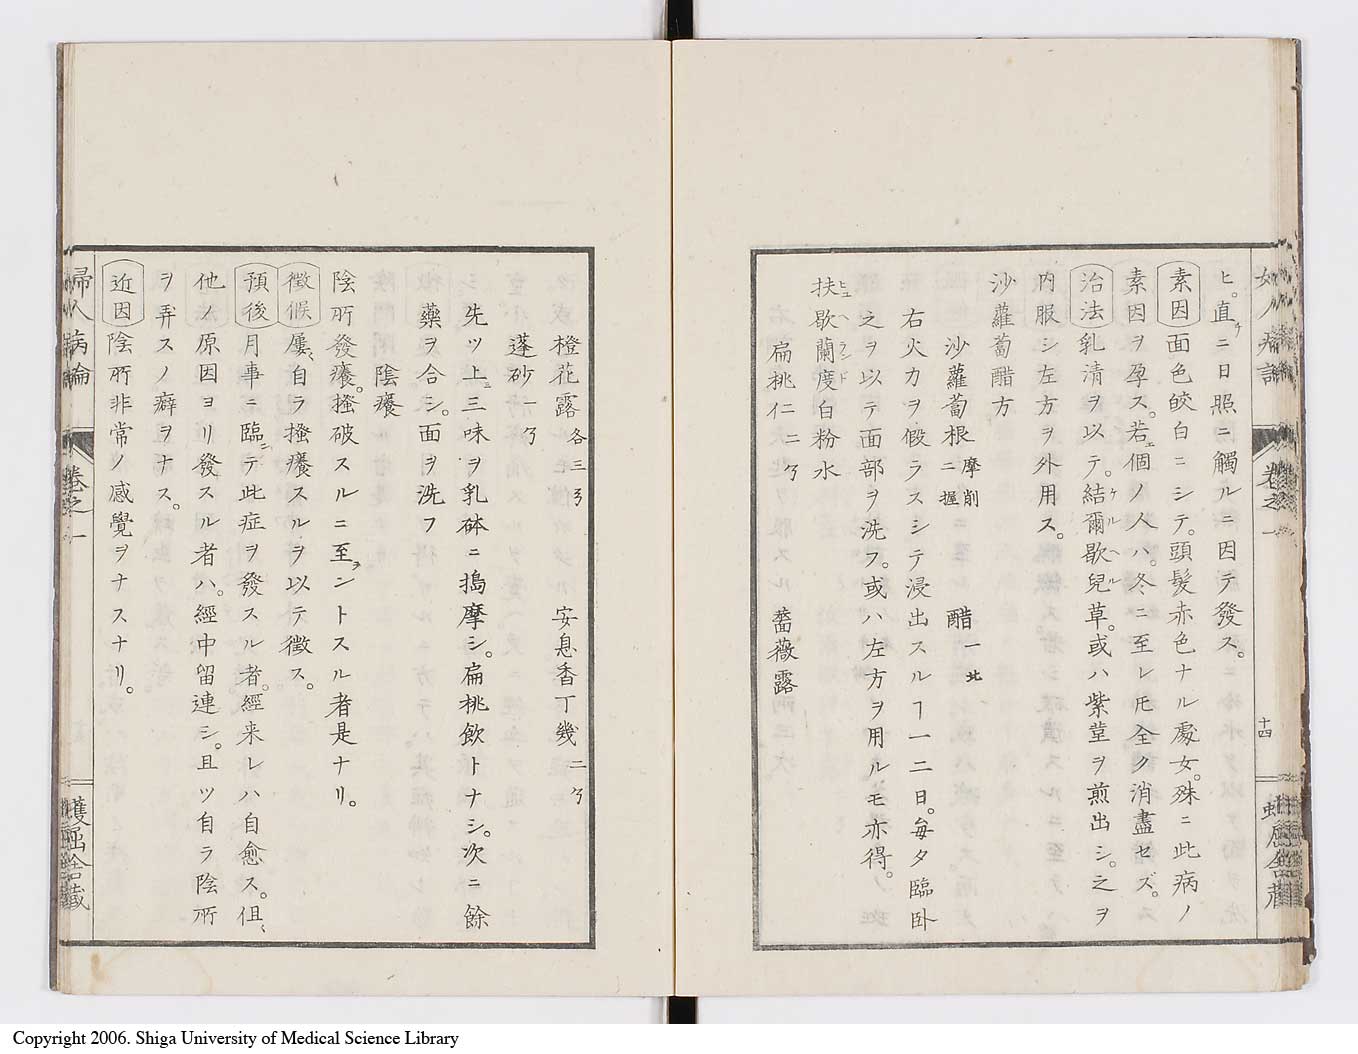 ヒ。直チニ日照ニ觸ルニ因テ發ス。
素因 面色皎白ニシテ。頭髮赤色ナル處女。殊ニ此病ノ
素因ヲ孕ス。若エ個ノ人ハ。冬ニ至レ𪜈全ク消盡セズ。
治法 乳清ヲ以テ。結爾歇兒草。或ハ紫菫ヲ煎出シ。之ヲ
ケルヘル
内服シ左方ヲ外用ス。
沙蘿蔔醋方
沙蘿蔔根 摩削二握 醋 一
右火力ヲ假ラスシテ浸出スルヿ一二日。毎夕臨卧
之ヲ以テ面部ヲ洗フ。或ハ左方ヲ用ルモ亦得。
扶歇蘭度白粉水
ヒュヘランド
扁桃仁 二ゟ 薔薇露
橙花露 各三ゟ 安息香丁幾 二ゟ
蓬砂 一ゟ
先ツ上ニ三味ヲ乳砵ニ搗摩シ。扁桃飲トナシ。次ニ餘
藥ヲ合シ。面ヲ洗フ
陰癢
陰所發癢。搔破スルニ至ラントスル者是ナリ。
徴候 屢、自ラ搔癢スルヲ以テ徴ス。
預後 月事ニ臨ンテ此症ヲ發スル者。經来レハ自愈ス。但、
他ノ原因ヨリ發スル者ハ。經中留連シ。且ツ自ラ陰所
ヲ弄スノ癖ヲナス。
近因 陰所非常ノ感覺ヲナスナリ。
婦人病論 卷之一
十四
蠖屈舎藏
Copyright 2006. Shiga University of Medical Science Library